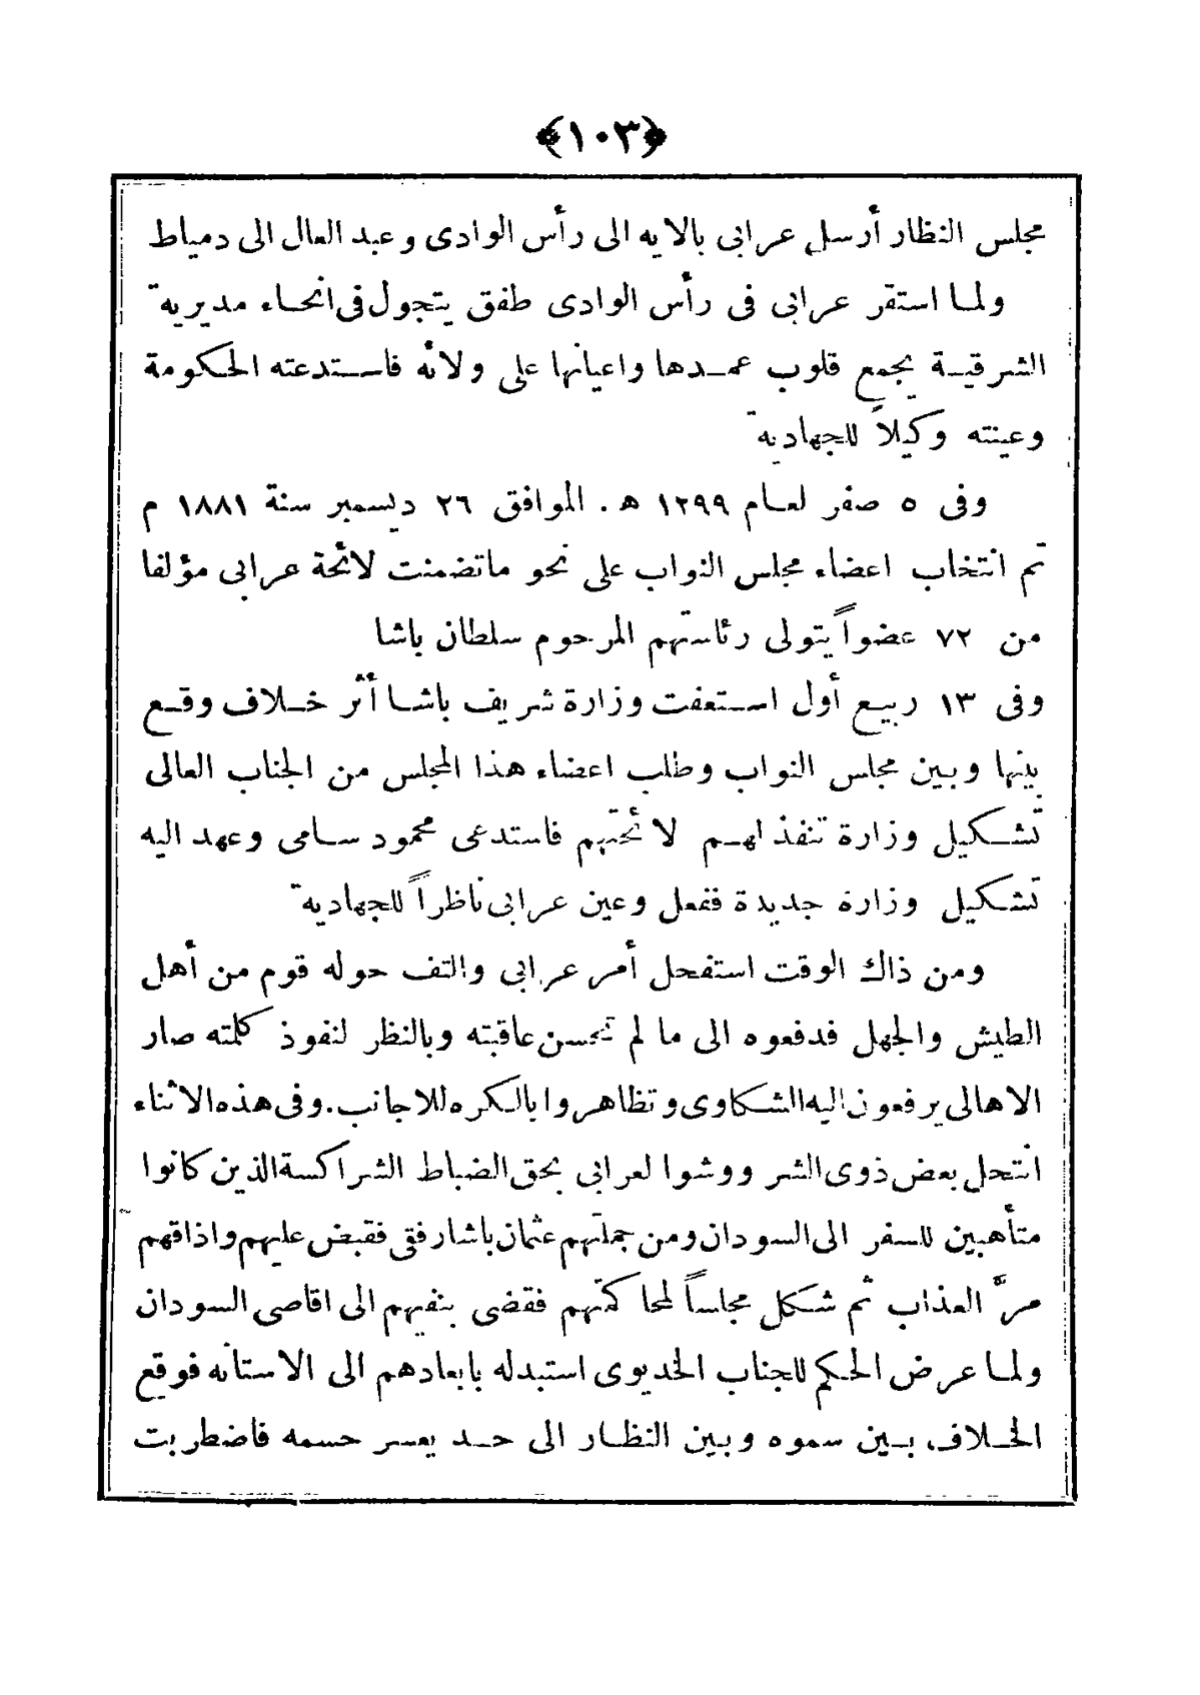 ﴿١٠٣﴾
مجلس النظار أرسل عرابى بالايه الى رأس الوادى وعبد العال الى دمياط
ولما استقر عرابى فى رأس الوادى طفق يتجول فى انحاء مديرية
الشرقية يجمع قلوب عمدها واعيانها على ولائه فاستدعته الحكومة
وعينته وكيلاً للجهادية
وفى ٥ صفر لعام ١٢٩٩ ه. الموافق ٢٦ ديسمبر سنة ١٨٨١ م
تم انتخاب اعضاء مجلس النواب على نحو ماتضمنت لائحة عرابى مؤلفا
من ٧٢ عضواً يتولى رئاستهم المرحوم سلطان باشا
وفى ١٣ ربيع أول استعفت وزارة شريف باشا أثر خلاف وقع
بينها وبين مجلس النواب وطلب اعضاء هذا المجلس من الجناب العالى
تشكيل وزارة تنفذ لهم لائحتهم فاستدعى محمود سامى وعهد اليه
تشكيل وزارة جديدة ففعل وعين عرابى ناظراً للجهادية
ومن ذاك الوقت استفحل أمر عرابى والتف حوله قوم من أهل
الطيش والجهل فدفعوه الى ما لم تحسن عاقبته وبالنظر لنفوذ كلمته صار
الاهالى يرفعون اليه الشكاوى وتظاهروا بالكره للاجانب. وفى هذه الاثناء
انتحل بعض ذوى الشر ووشوا لعرابى بحق الضباط الشراكسة الذين كانوا
متأهبين للسفر الى السودان ومن جملتهم عثمان باشا رفقى فقبض عليهم واذاقهم
مرَّ العذاب ثم شكل مجلساً لمحاكمتهم فقضى بنفيهم الى اقاصى السودان
ولما عرض الحكم للجناب الخديوى استبدله بابعادهم الى الاستانه فوقع
الخلاف بين سموه وبين النظار الى حد يعسر حسمه فاضطربت